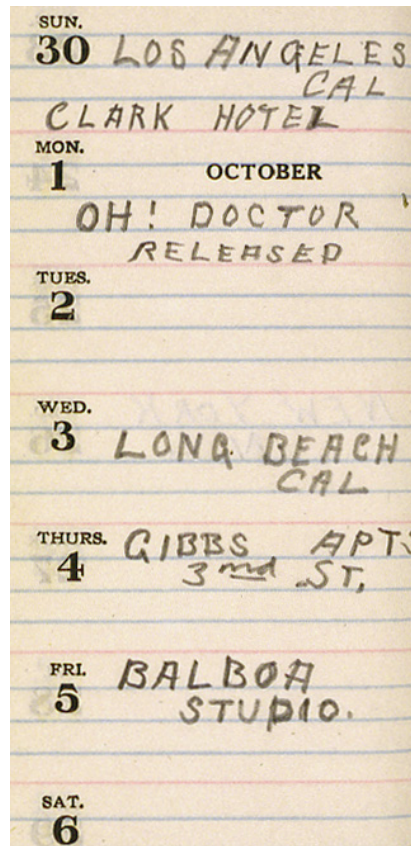 SUN.
30 LOS ANGELES
CAL
CLARK HOTEL
MON.
1 OCTOBER
OH! DOCTOR
RELEASED
TUES.
2
WED.
3 LONG BEACH
CAL
THURS.
4 GIBBS APTS
3md ST,
FRI.
5 BALBOA
STUDIO.
SAT.
6